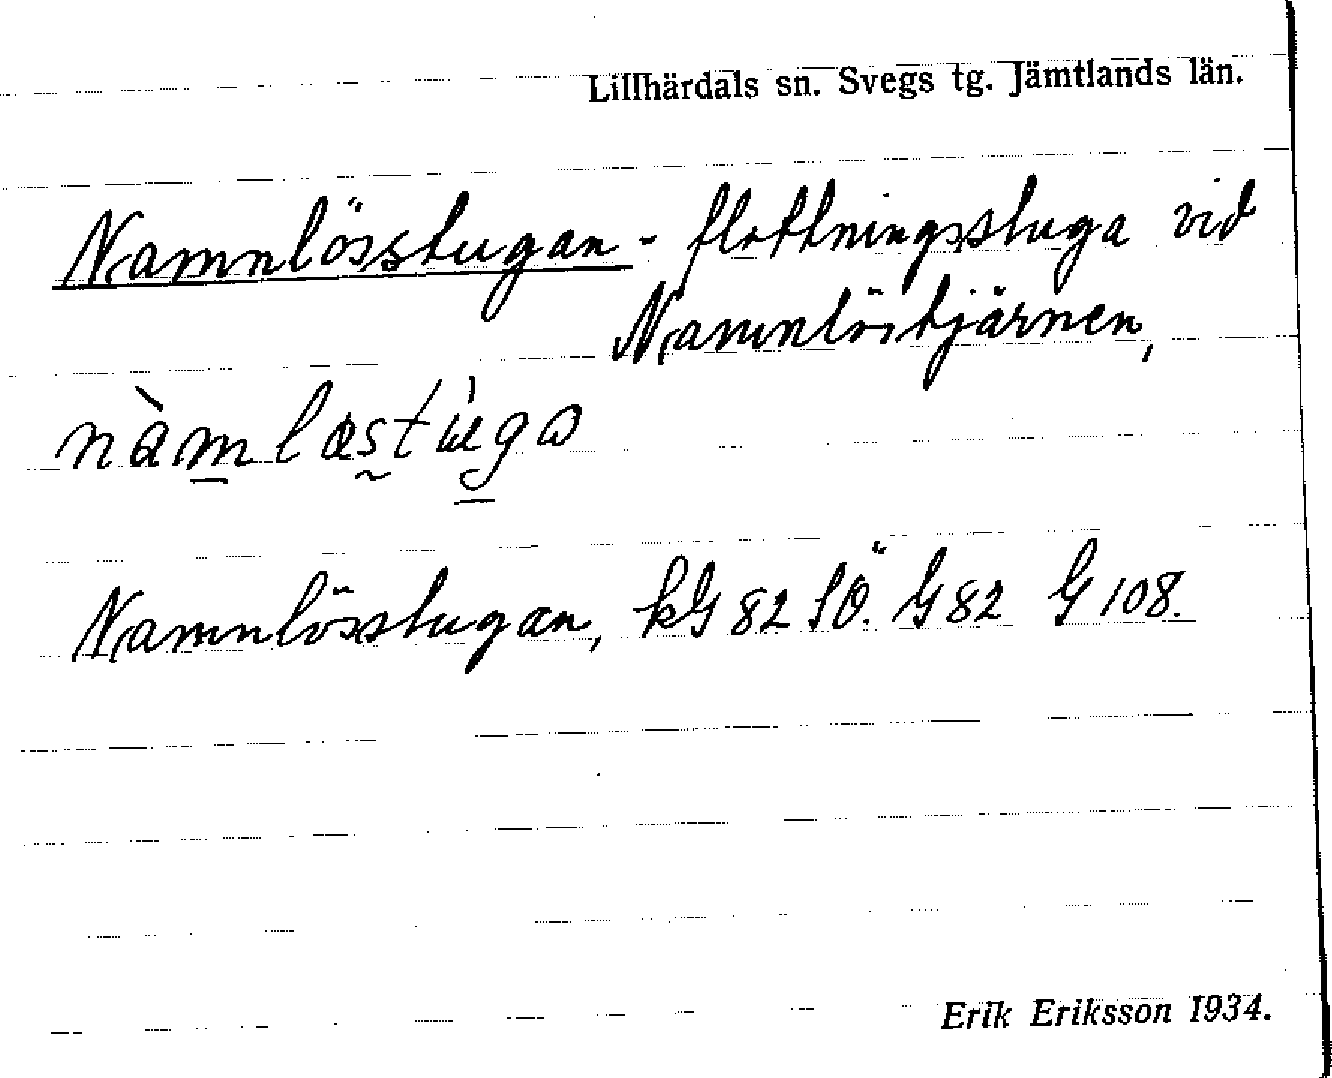 Lillhärdals sn. Svegs tg. Jämtlands län.
Namnlösstugan - flottningsstuga vid
Namnlöstjärnen,
Namnlösstugan, kG 82 SÖ. G 82 G 108.
Erik Eriksson 1934.